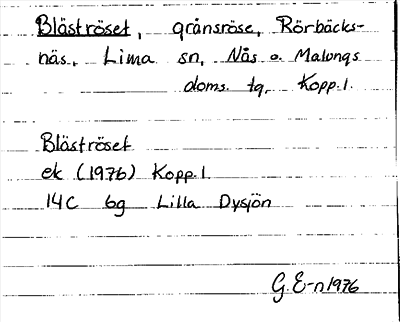 Bläströset, gränsröse, Rörbäcks-
näs, Lima sn, Nås o. Malungs
doms. tg, Kopp. l.
Bläströset
ek (1976) Kopp. l.
14C 6g Lilla Dysjön
G. E-n 1976